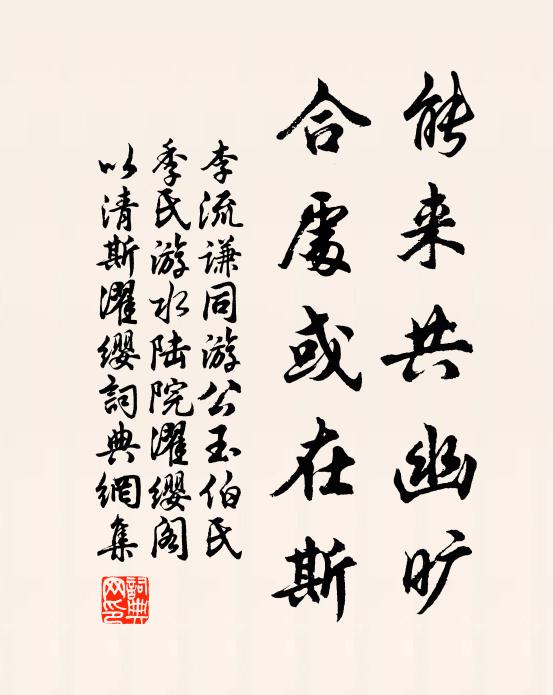 能来共幽旷
合處或在斯
李流谦同游公玉伯氏
季氏游水陆院濯缨阁
以清斯濯缨詞典網集
詞典网印